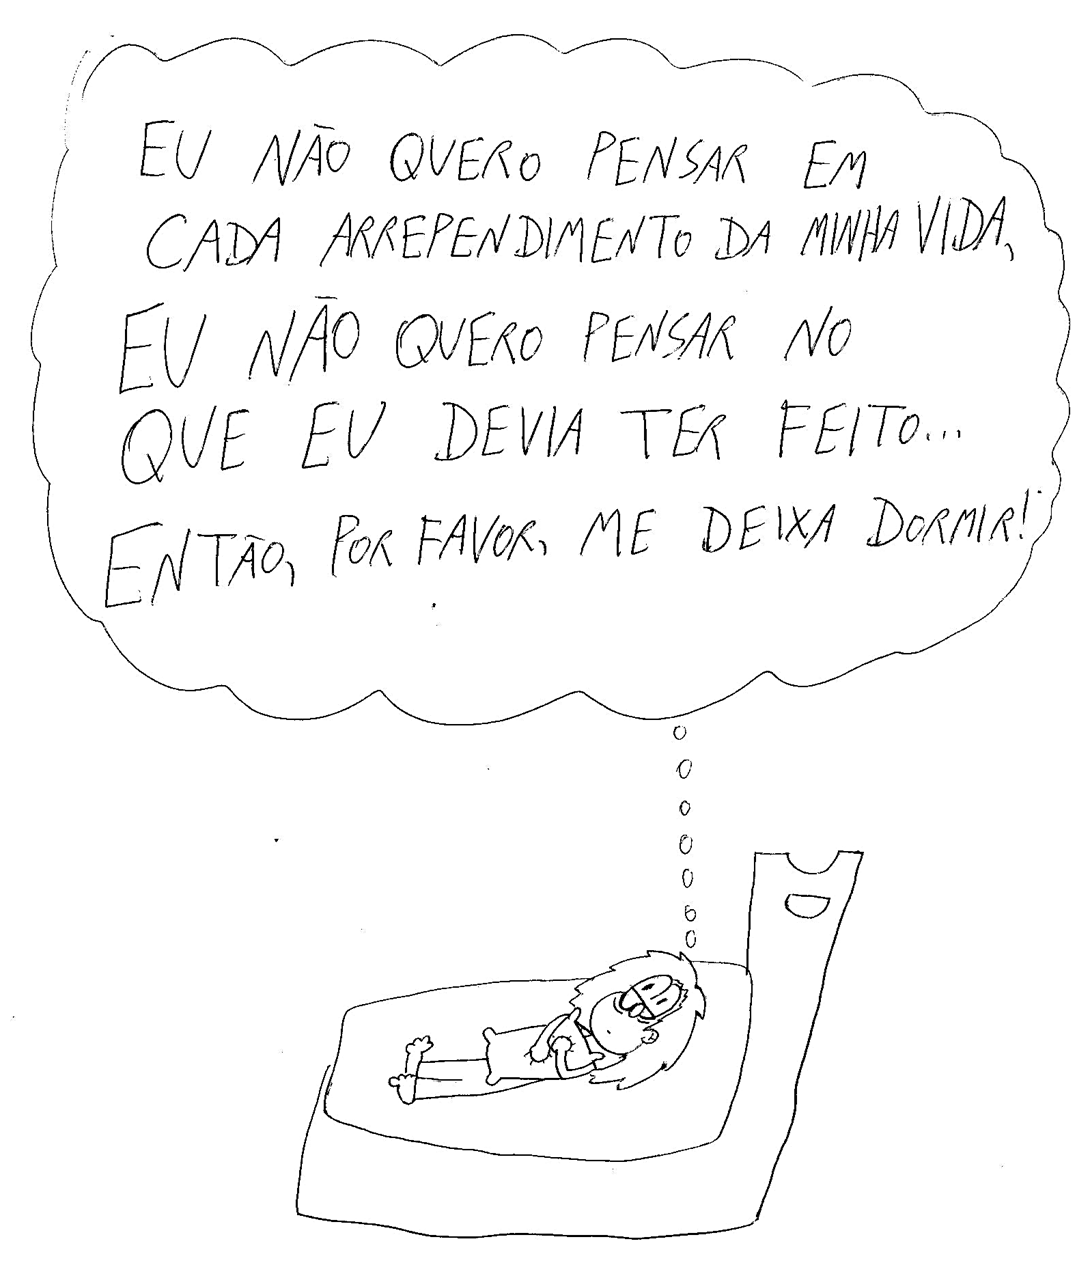 EU NÃO QUERO PENSAR EM
CADA ARREPENDIMENTO DA MINHA VIDA,
EU NÃO QUERO PENSAR NO
QUE EU DEVIA TER FEITO...
ENTÃO, POR FAVOR, ME DEIXA DORMIR!